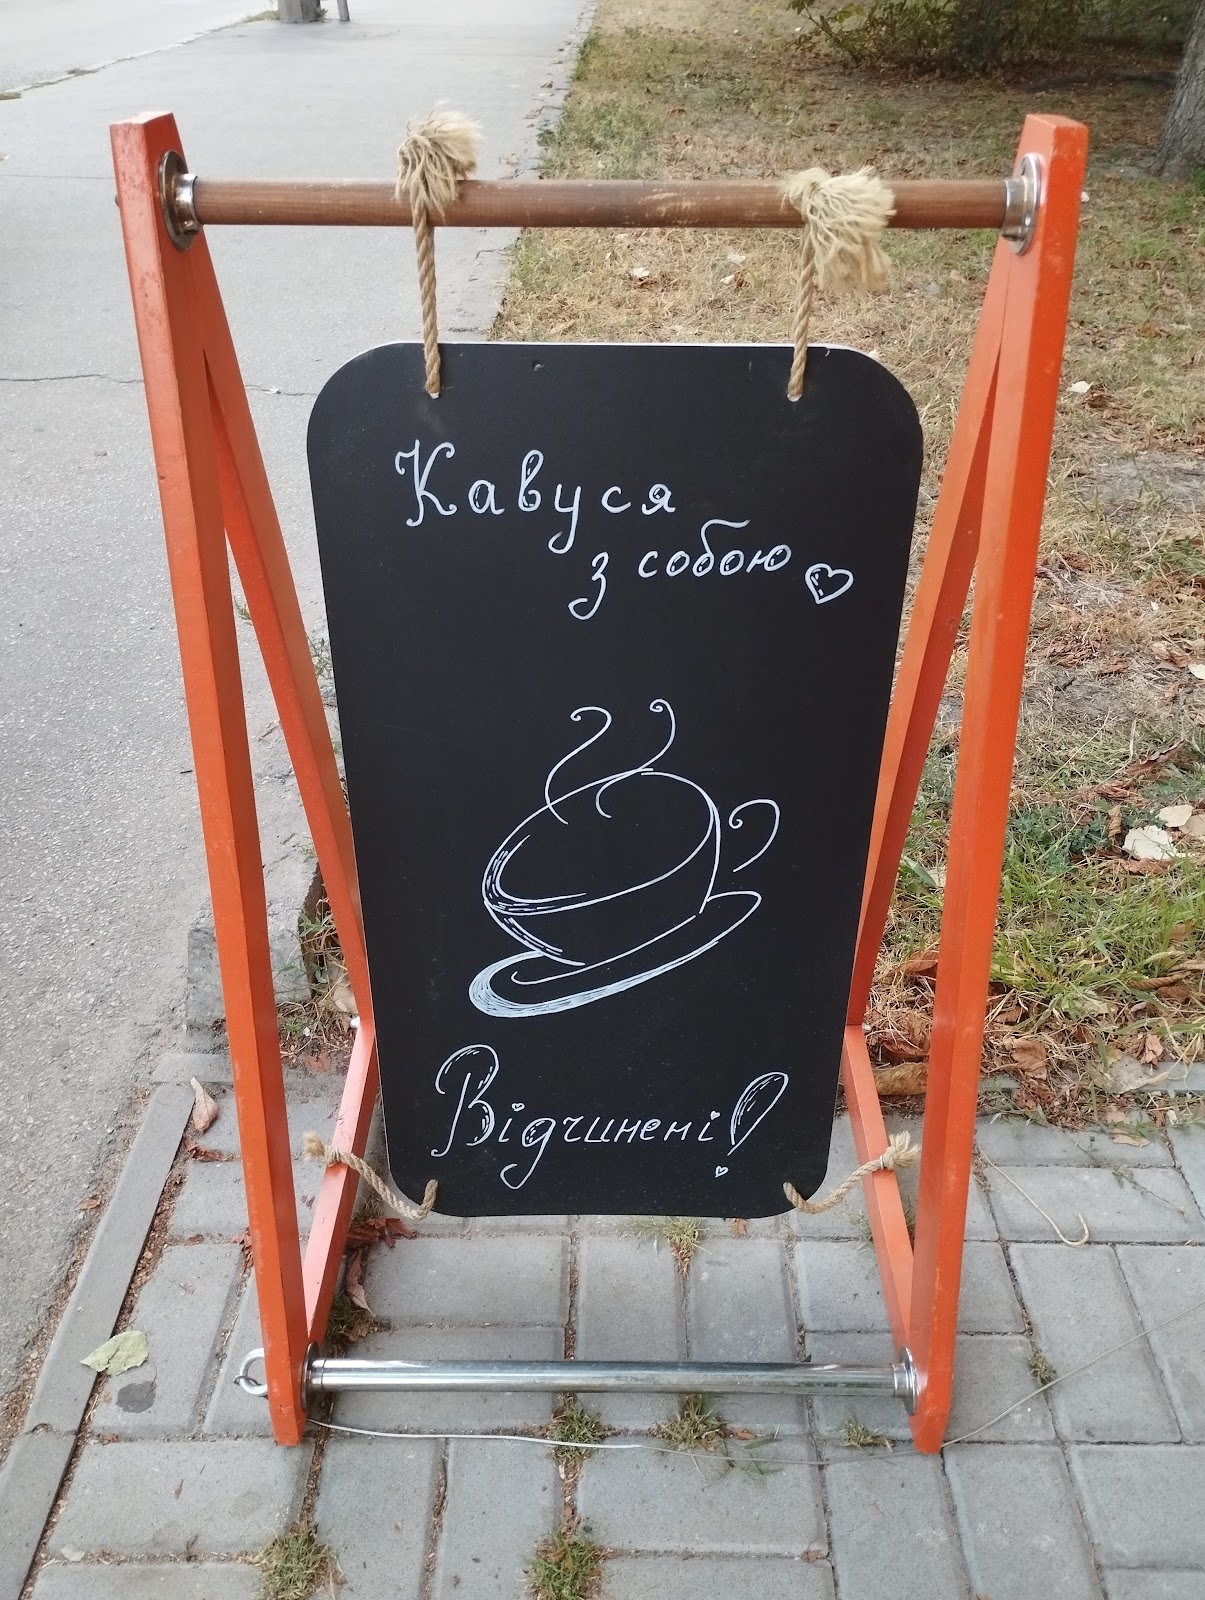 Кавуся
з собою
Відчинені!